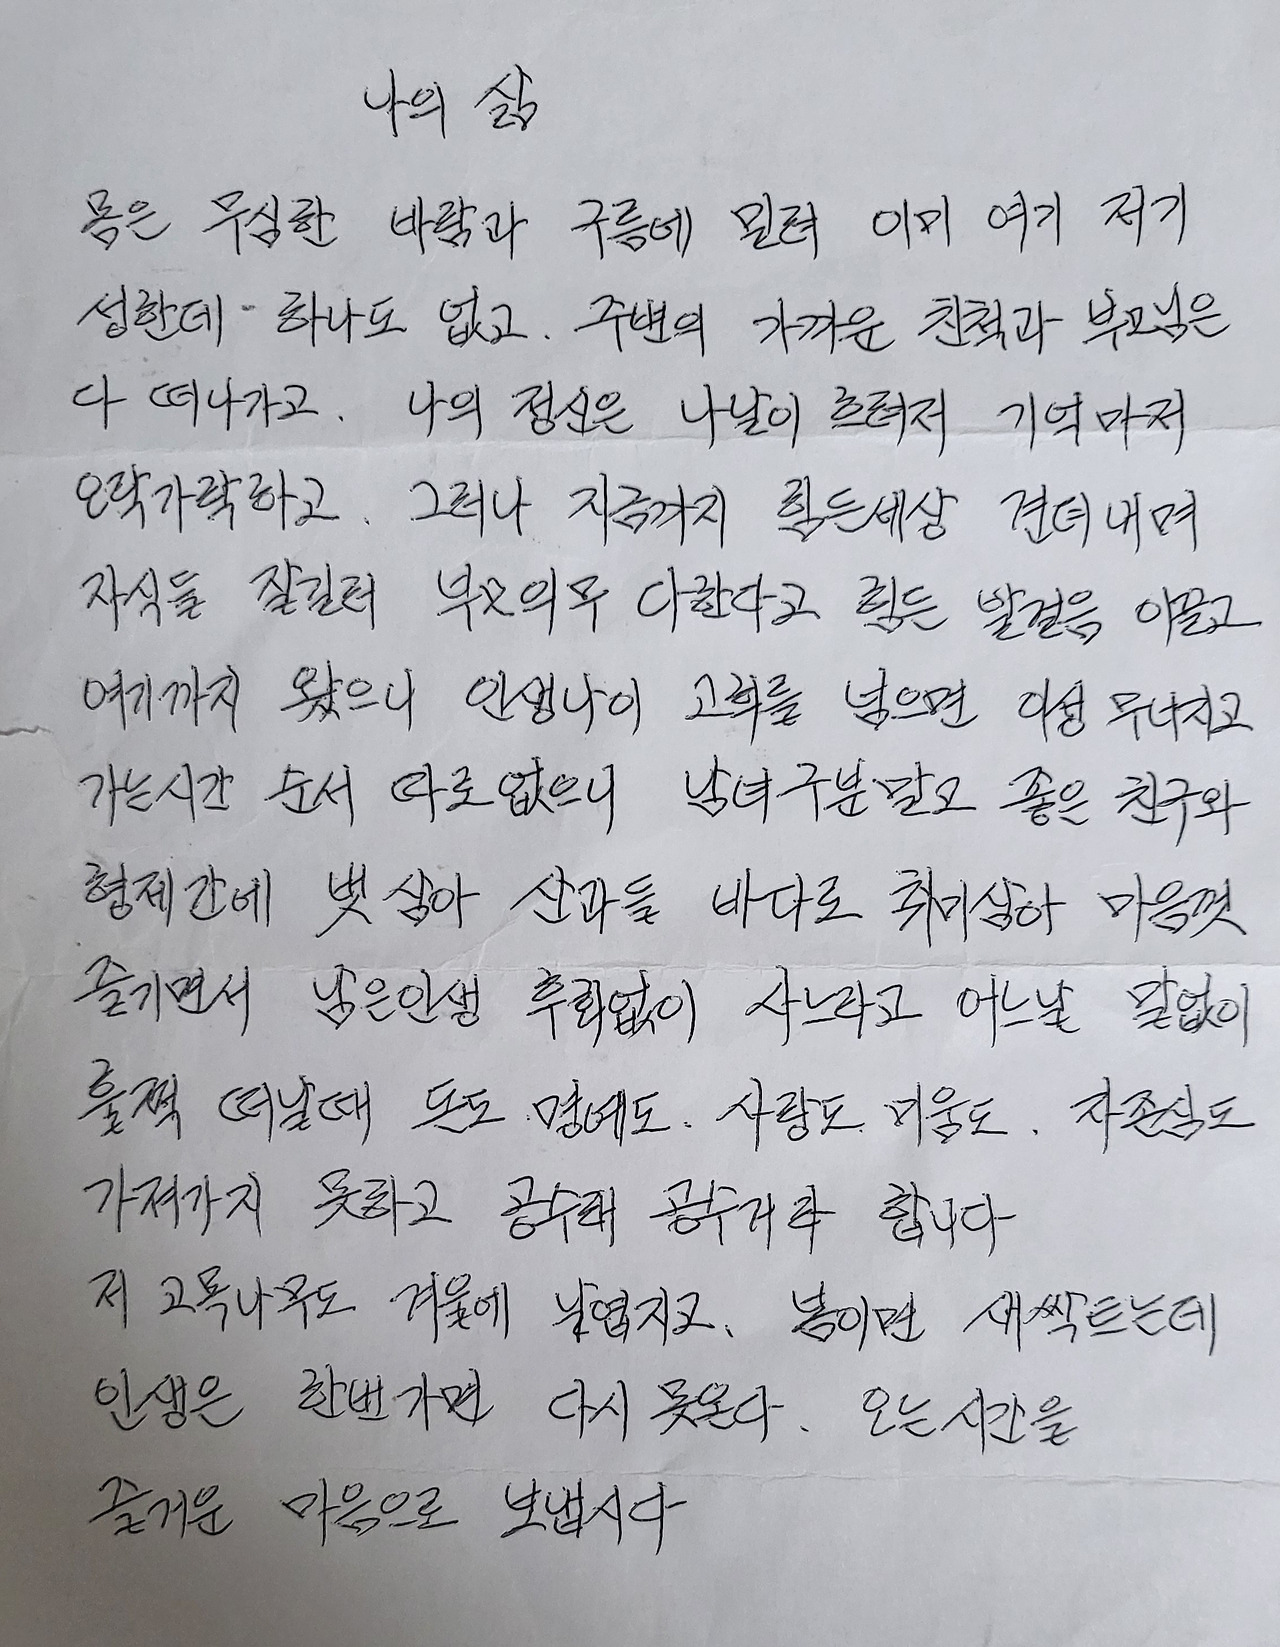 나의 삶
몸은 무심한 바람과 구름에 밀려 이미 여기 저기
성한데 하나도 없고. 주변의 가까운 친척과 부모님은
다 떠나가고. 나의 정신은 나날이 흐려저 기억마저
오락가락하고. 그러나 지금까지 힘든세상 견뎌내며
자식들 잘길러 부모의무 다한다고 힘든 발걸음 이끌고
여기까지 왔으니 인생나이 고희를 넘으면 이성 무너지고
가는시간 순서 따로없으니 남녀구분말고 좋은 친구와
형제간에 벗삼아 산과들 바다로 취미삼아 마음껏
즐기면서 남은인생 후회없이 사느라고 어느날 말없이
훌쩍 떠날때 돈도 명예도. 사랑도. 미움도. 자존심도
가져가지 못하고 공수래 공수거라 합니다
저 고목나무도 겨울에 낙엽지고. 봄이면 새싹트는데
인생은 한번가면 다시 못온다. 오는시간을
즐거운 마음으로 보냅시다